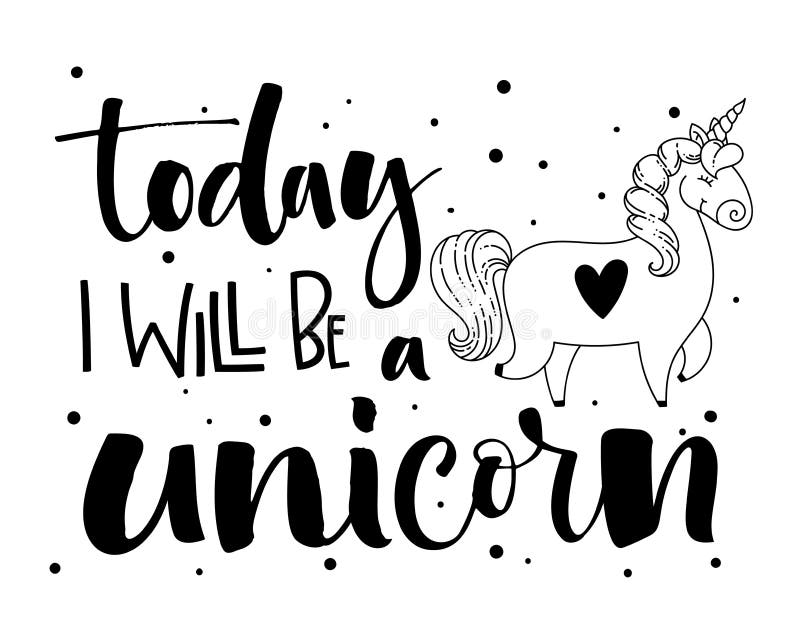 today
I WILL BE a
unicorn